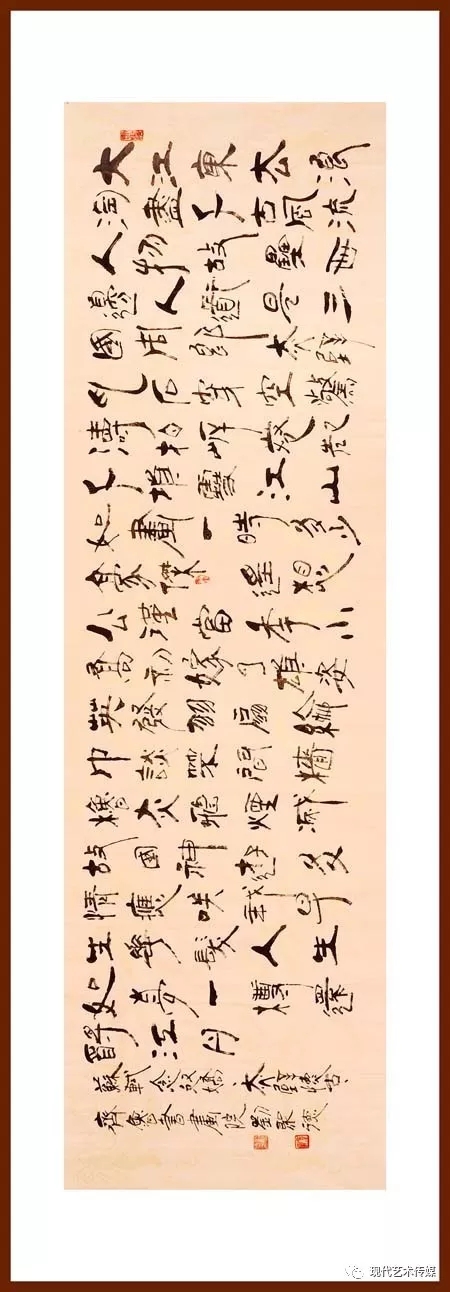 大江東去浪
淘盡千古風流
人物故壘西
邊人道是三
國周郎赤壁
亂石穿空驚
濤拍岸卷起
千堆雪江山
如畫一時多少
豪傑遙想
公瑾當年小
喬初嫁了雄姿
英發羽扇綸
巾談笑間檣
櫓灰飛煙滅
故國神遊多
情應笑我早
生華髮人生
如夢一樽還
酹江月
蘇軾念奴嬌赤壁懷古
齊魯書畫院劉聚德
现代艺术传媒